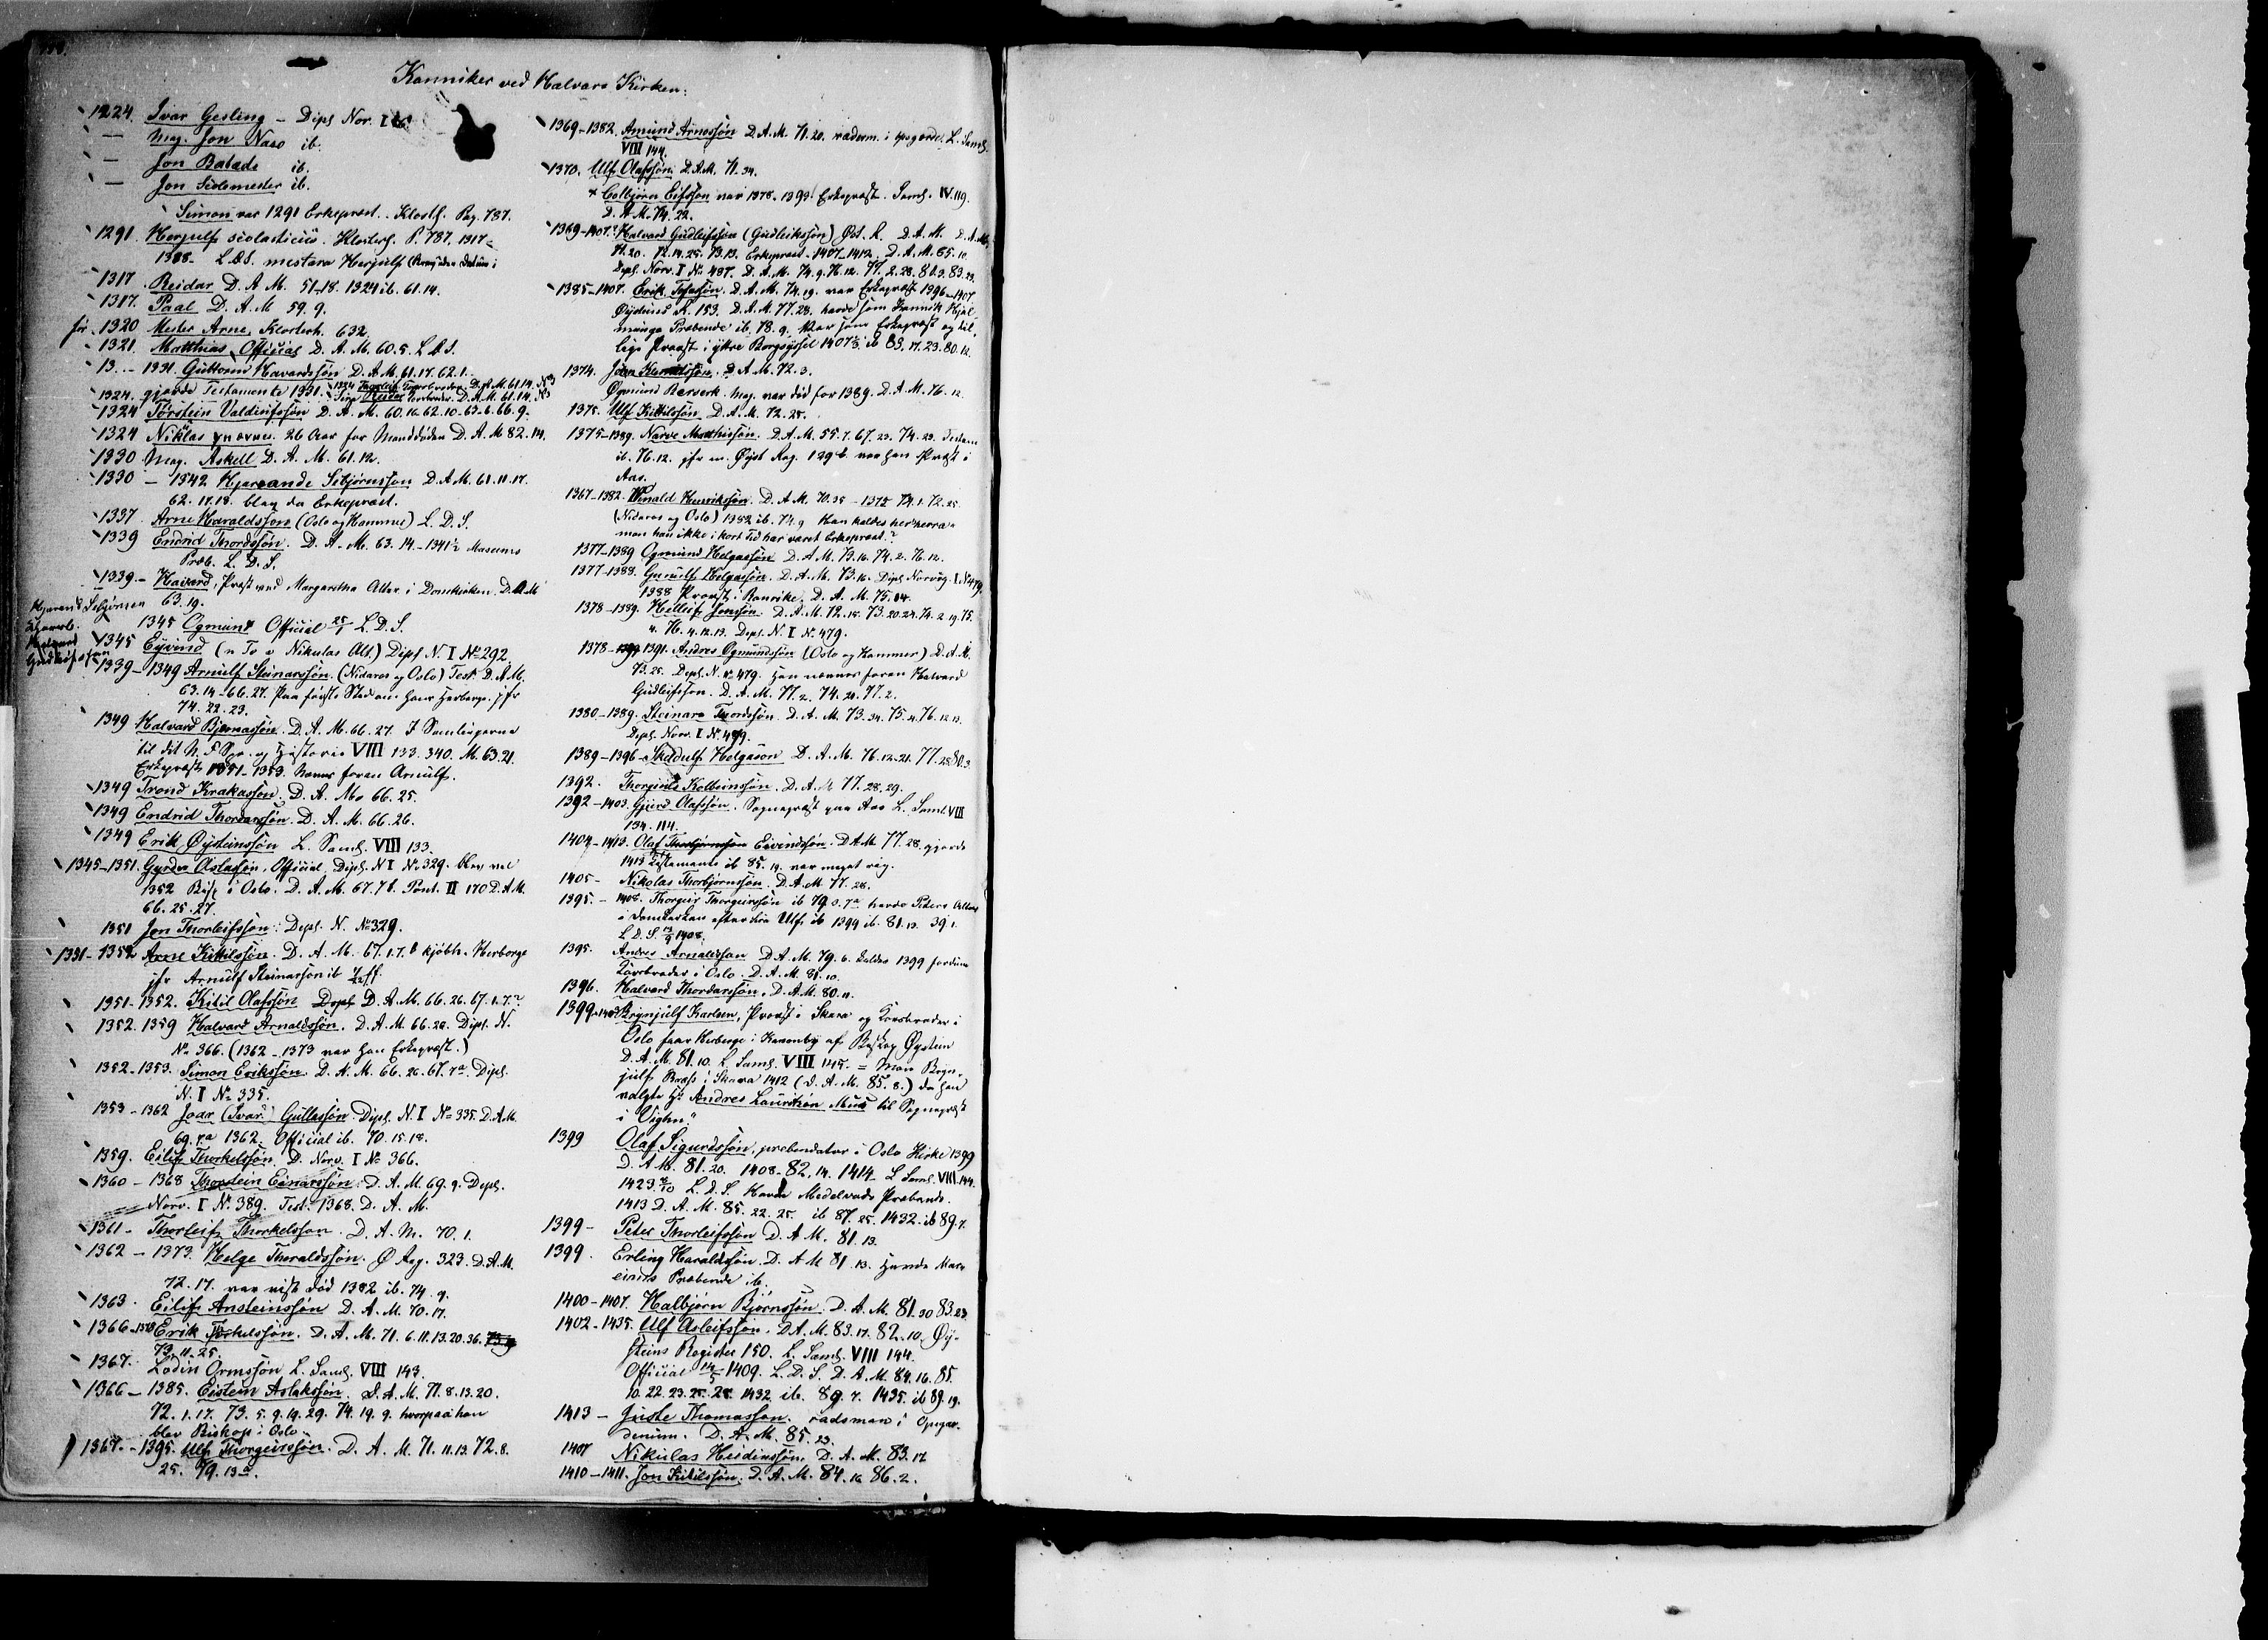 Kanniker ved Halvars Kirken.
1224. Ivar Gesling – Dipl. Nor. I
— Mag. Jon Naso ib.
— Jon Balads ib.
— Jon Sidemester ib.
Simon var 1291 Erkeprest. Klosth. Pag. 787.
1291. Herjulf scolasticus. Klosterh. P. 787. 1317
L.D.S. mestara Herjulf
1317 Reidar D. A. M. 51.18. 1324 ib. 61.14.
1317. Paal D. A. M. 59. 9.
før 1320 Mester Arne, Klosterh. 632.
1321. Matthias, Official D. A. M. 60.5. L.D.S.
13.. – 1331. Guttorm Havardssøn D.A.M. 61.17. 62.1.
1324. gjorde Testamente 1331.
1324 Torstein Valdinfssøn D. A. M. 60.16. 62.10. 63.6. 66.9.
1324 Niklas 26 Aar før Manddøden D. A. M. 82.14.
1330 Mag. Askell D. A. M. 61.12.
1330 – 1342 Hjarrande Sebjørnssøn D.A.M. 61.11.17.
62.17.18. blev da Erkeprest.
1337. Arne Haraldssøn (Oslo og Hammer) L. D. S.
1339 Endrid Thordssøn. D. A. M. 63. 14. – 1341
Præb. L. D. S.
1339 – Haivard, Prest ved Margarethe Alter i Domkirken. D.A.M.
63.19.
1345 Ogmund Official 25/1 L. D. S.
1345 Eyvind Nikulas Alt.) Dipl. N. I № 292.
1339 – 1349 Arnulf Steinarssøn. (Nidaros og Oslo) Test. D.A.M.
63.14 – 66.27. Paa første Sted en hans Herberge. jfr
74. 22. 23.
1349 Halvard Bjarnassøn. D. A. M. 66. 27. I Samlingerne
til det N. F. Spr. og Historie VIII 133. 340. M. 63.21.
Erkeprest 1351–1353. Nævnes foran Arnulf.
1349 Trond Krakassøn. D. A. M. 66. 25.
1349 Endrid Thordarssøn. D. A. M. 66. 26.
1349 Erik Øysteinssøn L. Saml. VIII 133.
1345–1351. Gyrder Aslassøn, Official, Dipl. N I № 329. blev
1352 Bisp i Oslo. D. A. M. 67. 7 b. Pont. II 170 D.A.M.
66. 25. 27.
1351 Jon Thorleifssøn: Dipl. N. № 329.
1331–1352 Arne Kittilssøn. D. A. M. 67. 1. 7. b kjøbte Herberge
jfr Arnulf Steinarssøn ib
1351–1352. Kitil Olafssøn D. A. M. 66. 26. 67. 1. 7.a
1352. 1359 Halvard Arnaldssøn. D. A. M. 66.26. Dipl. N.
№ 366. (1362–1373 var han Erkeprest.)
1352–1353. Simon Erikssøn. D. A. M. 66. 26. 67. 7 a. Dipl.
N. I № 335.
1353–1362 Joar (Ivar?) Gullessøn. Dipl. N. I № 335. D.A.M.
69. 7.a 1362. Official ib. 70. 15. 18.
1359. Eilif Thorkelssøn. D. Norv. I № 366.
1360 – 1368 Thorstein Einarssøn. D. A. M. 69. 9. Dipl.
Norv. I № 389. Test. 1368. D. A. M.
1361 – Thorleif Thorkelssøn. D. A. M. 70. 1.
1362 – 1373. Helge Thoraldssøn. Ø Reg. 323. D.A.M.
72. 17. var vist død 1382 ib. 74. 9.
1363. Eilif Ansteinssøn D. A. M. 70. 17.
1366–1378 Erik Thorkelssøn. D. A. M. 71. 6. 11. 13. 20. 36.
73. 11. 25.
1367. Lodin Ormssøn L. Saml. VIII 143.
1366 – 1385. Eistein Aslakssøn. D. A. M. 71. 8. 13. 20.
72. 1. 17. 73. 5. 9. 19. 29. 74. 19. 9. hvorpaa han
blev Biskop i Oslo.
1367 – 1395. Ulf Thorgeirssøn. D. A. M. 71. 11. 13. 72. 8.
25. 79. 13 a.
1369–1382. Amund Arnessøn D.A.M. 71.20. L. Saml.
VIII 144.
1370. Ulf Olafssøn. D.A.M. 71. 34.
Colbjørn Eifssøn var 1378–1393 Erkeprest. Saml. IV. 119.
D. A. M. 74. 22.
1369–1407. Halvard Gudleifssøn (Gudleikssøn) Øst. R. D. A. M.
71. 20. 72. 14. 25. 73. 13. Erkeprest 1407–1412. D. A. M. 85. 10.
Dipl. Norv. I № 487. D. A. M. 74. 9. 76. 12. 77. 2. 28. 81. 3. 83. 23.
1385–1407. Erik Tofessøn. D. A. M. 74. 19. var Erkeprest 1396–1407
Øysteins R. 153. D. A. M. 77. 28. havde som
Præbende ib. 78. 9. Var som Erkeprest og til
lige Provst i ytre Borgesyssel 1407
1374. D. A. M. 72. 3.
Øgmund Berserk. Mag. var død før 1389. D. A. M. 76. 12.
1375. Ulf Kittilssøn D. A. M. 72. 25.
1375–1389. Narve Matthissøn. D. A. M. 55. 7. 67. 23. 74. 23.
ib. 76. 12. jfr Øyst. Reg. 129 b. var han Prest i
Aas.
1367–1382. Vinald Henrikssøn. D. A. M. 70. 35 – 1375 74. 1. 72. 25.
(Nidaros og Oslo) 1382 ib. 74. 9 Han kaldes her herra,
mon han ikke i kort Tid har været Erkeprest?
1377–1389 Ogmund Helgassøn D. A. M. 73. 16. 74. 2. 76. 12.
1377–1388. Gunulf Helgassøn. D. A. M. 73. 16. Dipl. Norveg. I. № 479.
1388 Provst i Ranrike. D. A. M. 75. 14.
1378–1389. Helleif Jonssøn. D. A. M. 72. 15. 73. 20. 24. 74. 2. 19. 75.
4. 76. 4. 12. 13. Dipl. N. I № 479.
1378 – 1391. Andres Ogmundssøn (Oslo og Hammer) D. A. M.
73. 25. Dipl. N. № 479. Han nævnes foran Halvard
Gudleifssøn. D. A. M. 77. 2. 74. 24. 77. 2.
1380–1389. Steinare Thordssøn. D. A. M. 73. 34. 75. 4. 76. 12. 13.
Dipl. Norv. I № 479.
1389–1396 Skiddulf Helgason D. A. M. 76. 12. 21. 77. 28. 80. 3.
1392. Thorgiuls Kolbeinssøn. D. A. M. 77. 28. 29.
1392–1403. Gjurd Olafssøn. Sogneprest paa Aas L. Saml. VIII
134. 144.
1404–1413. Olaf Eivindssøn. D.A.M. 77. 28. gjorde
1413 Testamente ib 85. 14. var meget rig.
1405 – Nikolas Thorbjørnssøn. D. A. M. 77. 28.
1395. – 1408. Thorgeir Thorgeirssøn ib 79. 3. 7.a havde Peters Altar
i Domkirken efter Sira Ulf ib 1394 ib. 81. 13. 39. 1.
L. D. S. 1408.
1395. Andres Arnaldssøn D. A. M. 79. 6. kaldes 1399 fordum
Korsbroder i Oslo. D. A. M. 81. 10.
1396. Halvard Thordarssøn. D. A. M. 80. 11.
1399–1403 Brynjulf Karlsen, Provst i Skara og Korsbroder i
Oslo faar Herberge i Kannby af Biskop Øystein
D. A. M. 81. 10. L. Saml. VIII 145. = Mon Bryn
julf Provst i Skara 1412 (D. A. M. 85. 8.) da han
valgte Hr Andres Lauritzøn Muus til Sogneprest
i Vighn."
1399 Olaf Sigurdssøn, prebendatør i Oslo Kirke 1399
D. A. M. 81. 20. 1408. 82. 14. 1414 L Saml. VIII. 144.
1423. L. D. S. Havde Medelvads Præbende.
1413 D. A. M. 85. 22. 25. ib 87. 25. 1432. ib 89. 7.
1399 – Peter Thorleifssøn D. A. M. 81. 13.
1399. Erling Haraldssøn. D. A. M. 81. 13. Havde
Præbende ib.
1400–1407. Halbjørn Bjørnssøn. D. A. M. 81. 30 83. 23.
1402–1435. Ulf Asleifssøn. D.A.M. 83. 17. 82. 10. Øy-
steins Register 150. L. Saml. VIII 144.
Official 1409. L. D. S. D. A. M. 84. 16. 85.
10. 22. 23. 25. 28. 1432 ib. 89. 7. 1435. ib 89. 19.
1413 – Guste Thomassøn. radsman i Opegar
denum. D. A. M. 85. 23.
1407 Nikulas Heidinssøn. D. A. M. 83. 17
1410–1411. Jon Kitilssøn. D. A. M. 84. 16 86. 2.